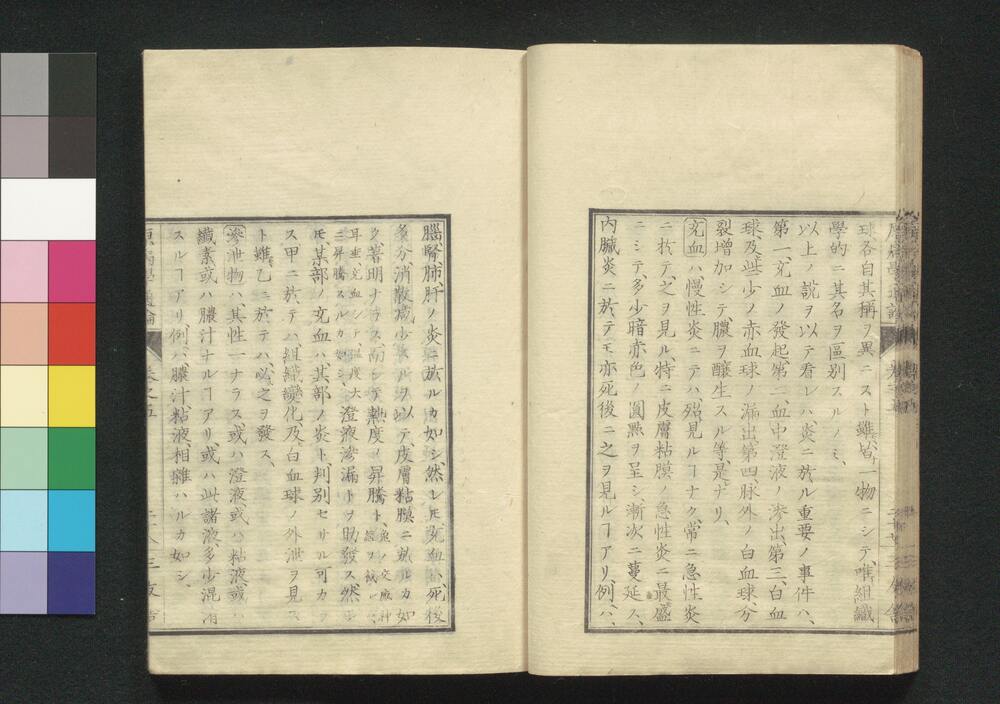 球各自其稱ヲ異ニスト雖𪜈皆一物ニシテ唯組織
學的ニ其名ヲ區別スルノミ、
以上ノ説ヲ以テ看レハ、炎ニ於ル重要ノ事件ハ、
第一、充血ノ發起、第二、血中澄液ノ滲出、第三、白血
球及些少ノ赤血球ノ漏出、第四、脉外ノ白血球、分
裂增加シテ、膿ヲ釀生スル等、是ナリ、
充血ハ、慢性炎ニテハ、殆見ルヿナク、常ニ急性炎
ニ於テ、之ヲ見ル、特ニ皮膚粘膜ノ急性炎ニ最盛
ニシテ、多少暗赤色ノ圓㸃ヲ呈シ、漸次ニ蔓延ス、
内臓炎ニ於テモ、亦死後ニ之ヲ見ルヿアリ、例ハ、
腦、腎、肺、肝ノ炎ニ於ルカ如シ、然レ𪜈充血ハ死後
多分、消散減少スルヲ以テ、皮膚粘膜ニ於ルカ如
ク著明ナラス、而シテ熱度ノ昇騰ト、
耳
三昇騰スルカ如シ、澄液滲漏トヲ助發ス、然レ
𪜈、某部ノ充血ハ、其部ノ炎ト判別セサル可カラ
ス甲ニ於テハ、組織變化、及、白血球ノ外泄ヲ見ス
ト雖、乙ニ於テハ必之ヲ發ス、
滲泄物ハ、其性一ナラス、或ハ澄液、或ハ粘液、或
纖素、或ハ膿汁ナルヿアリ、或ハ此諸液多少混淆
スルヿアリ、例ハ、膿汁粘液、相雜ハルカ如シ、